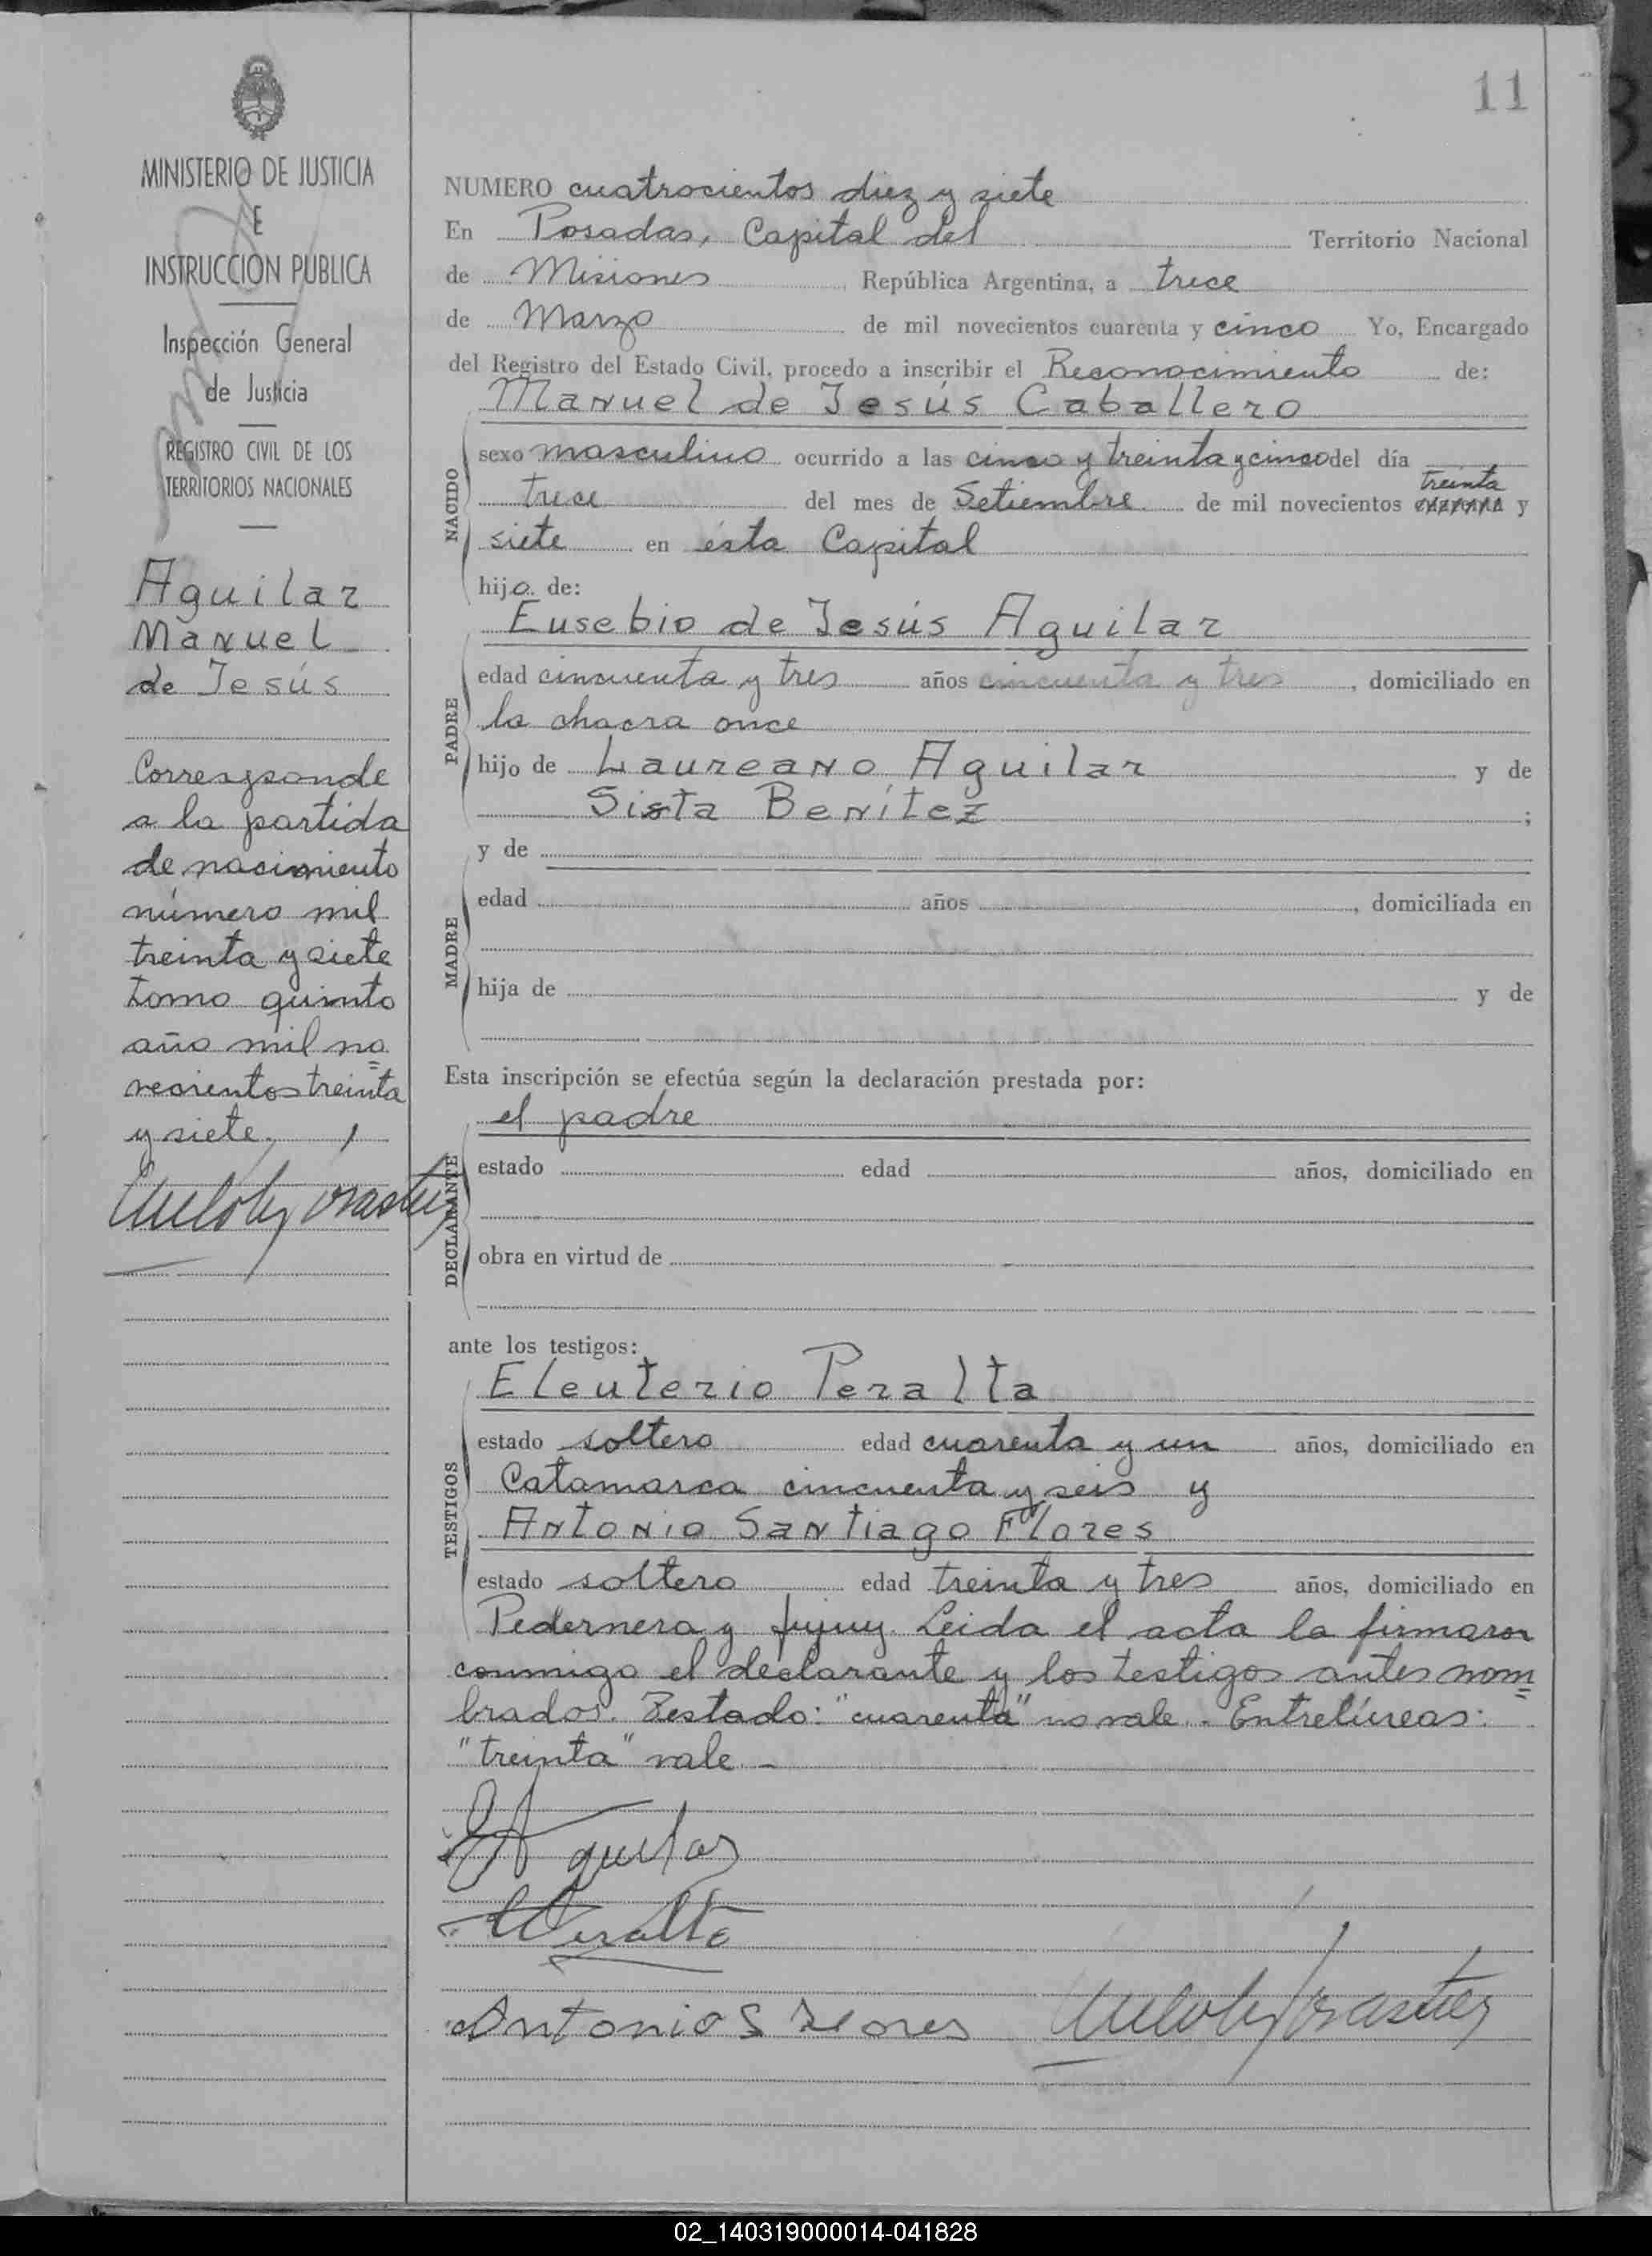 11
MINISTERIO DE JUSTICIA
E
INSTRUCCIÓN PÚBLICA
Inspección General
de Justicia
REGISTRO CIVIL DE LOS
TERRITORIOS NACIONALES
Aguilar
Manuel
de Jesús
Corresponde
a la partida
de nacimiento
número mil
treinta y siete
tomo quinto
año mil no
vecientos treinta
y siete.
NUMERO cuatrocientos diez y siete
En Posadas, Capital del Territorio Nacional
de Misiones República Argentina, a trece
de Marzo de mil novecientos cuarenta y cinco Yo, Encargado
del Registro del Estado Civil, procedo a inscribir el Reconocimiento de:
Manuel de Jesús Caballero
NACIDO
sexo masculino ocurrido a las cinco y treinta y cinco del día
treinta
trece del mes de Setiembre de mil novecientos cuarenta y
siete en ésta Capital
hijo de:
Eusebio de Jesús Aguilar
PADRE
edad cincuenta y tres años cincuenta y tres, domiciliado en
la chacra once
hijo de Laureano Aguilar y de
Sista Benítez ;
y de
MADRE
edad años , domiciliada en
hija de y de
Esta inscripción se efectúa según la declaración prestada por:
el padre
DECLARANTE
estado edad años, domiciliado en
obra en virtud de
ante los testigos:
Eleuterio Peralta
TESTIGOS
estado soltero edad cuarenta y un años, domiciliado en
Catamarca cincuenta y seis y
Antonio Santiago Flores
estado soltero edad treinta y tres años, domiciliado en
Pedernera y Jujuy. Leida el acta la firmaron
conmigo el declarante y los testigos antes nom
brados. Testado: "cuarenta" no vale. Entrelíneas:
"treinta" vale.-
E Aguilar
EPeralta
Antonio S Flores
02_140319000014-041828